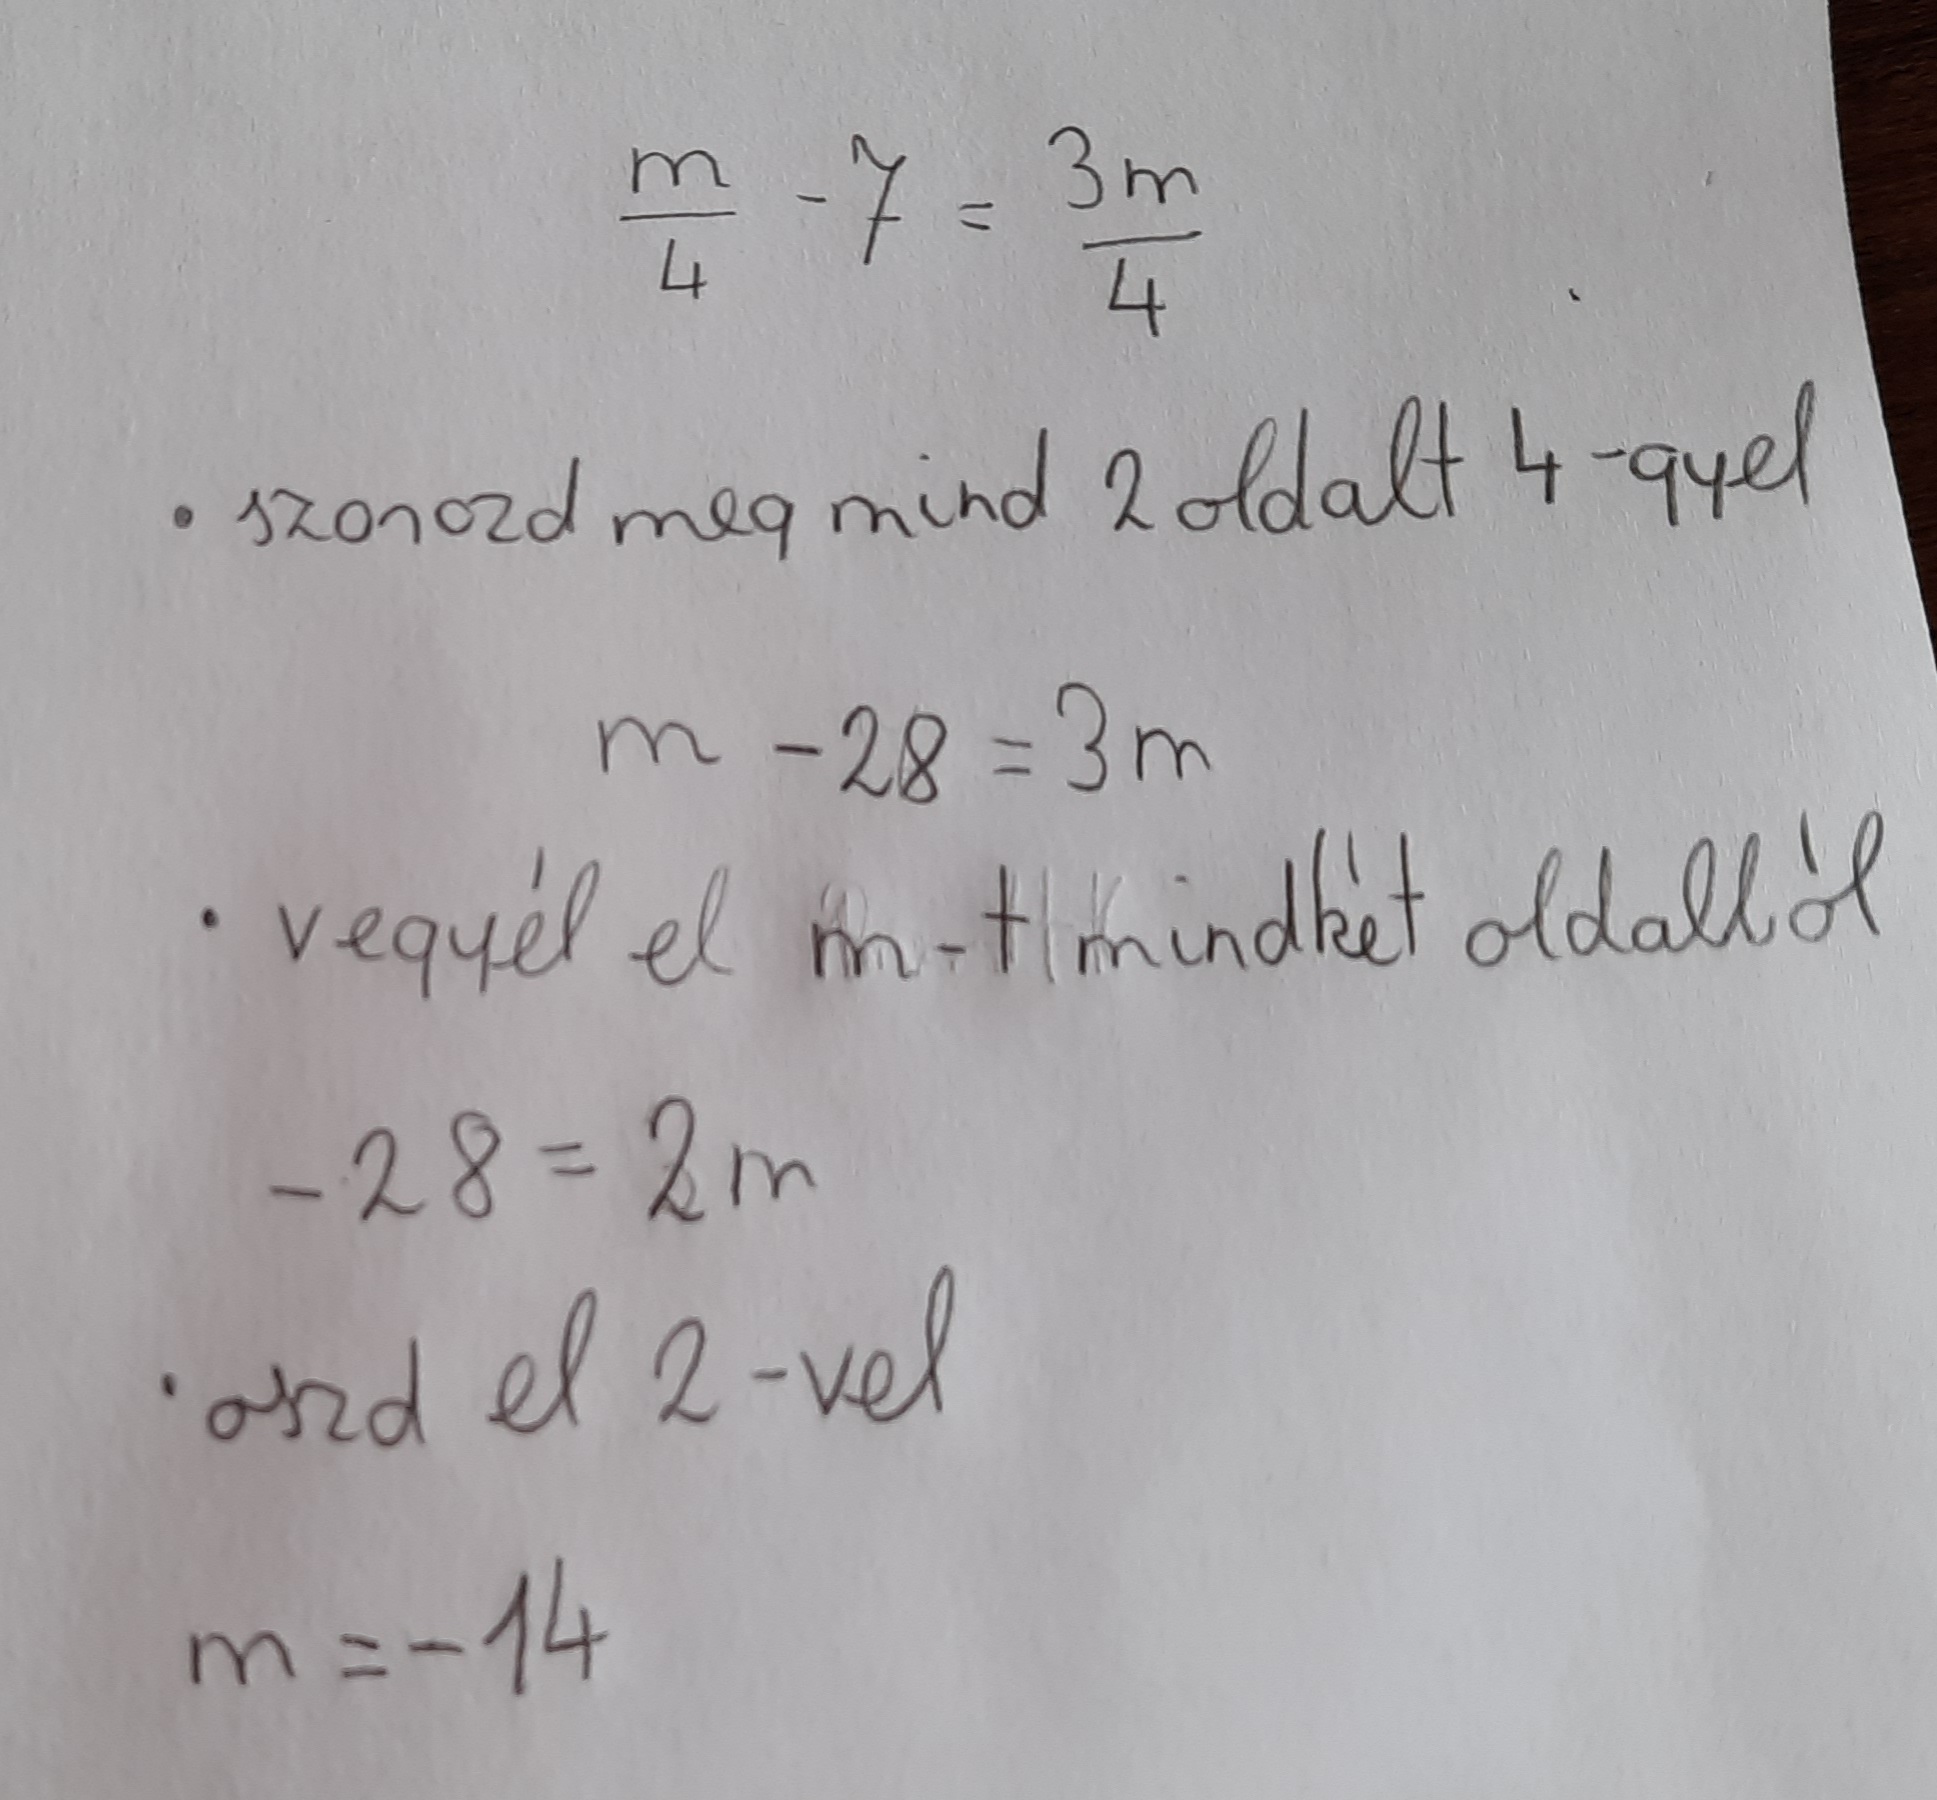 m/4 - 7 = 3m/4
• szorozd meg mind 2 oldalt 4-gyel
m - 28 = 3m
• vegyél el m-t mindkét oldalról
-28 = 2m
• oszd el 2-vel
m = -14